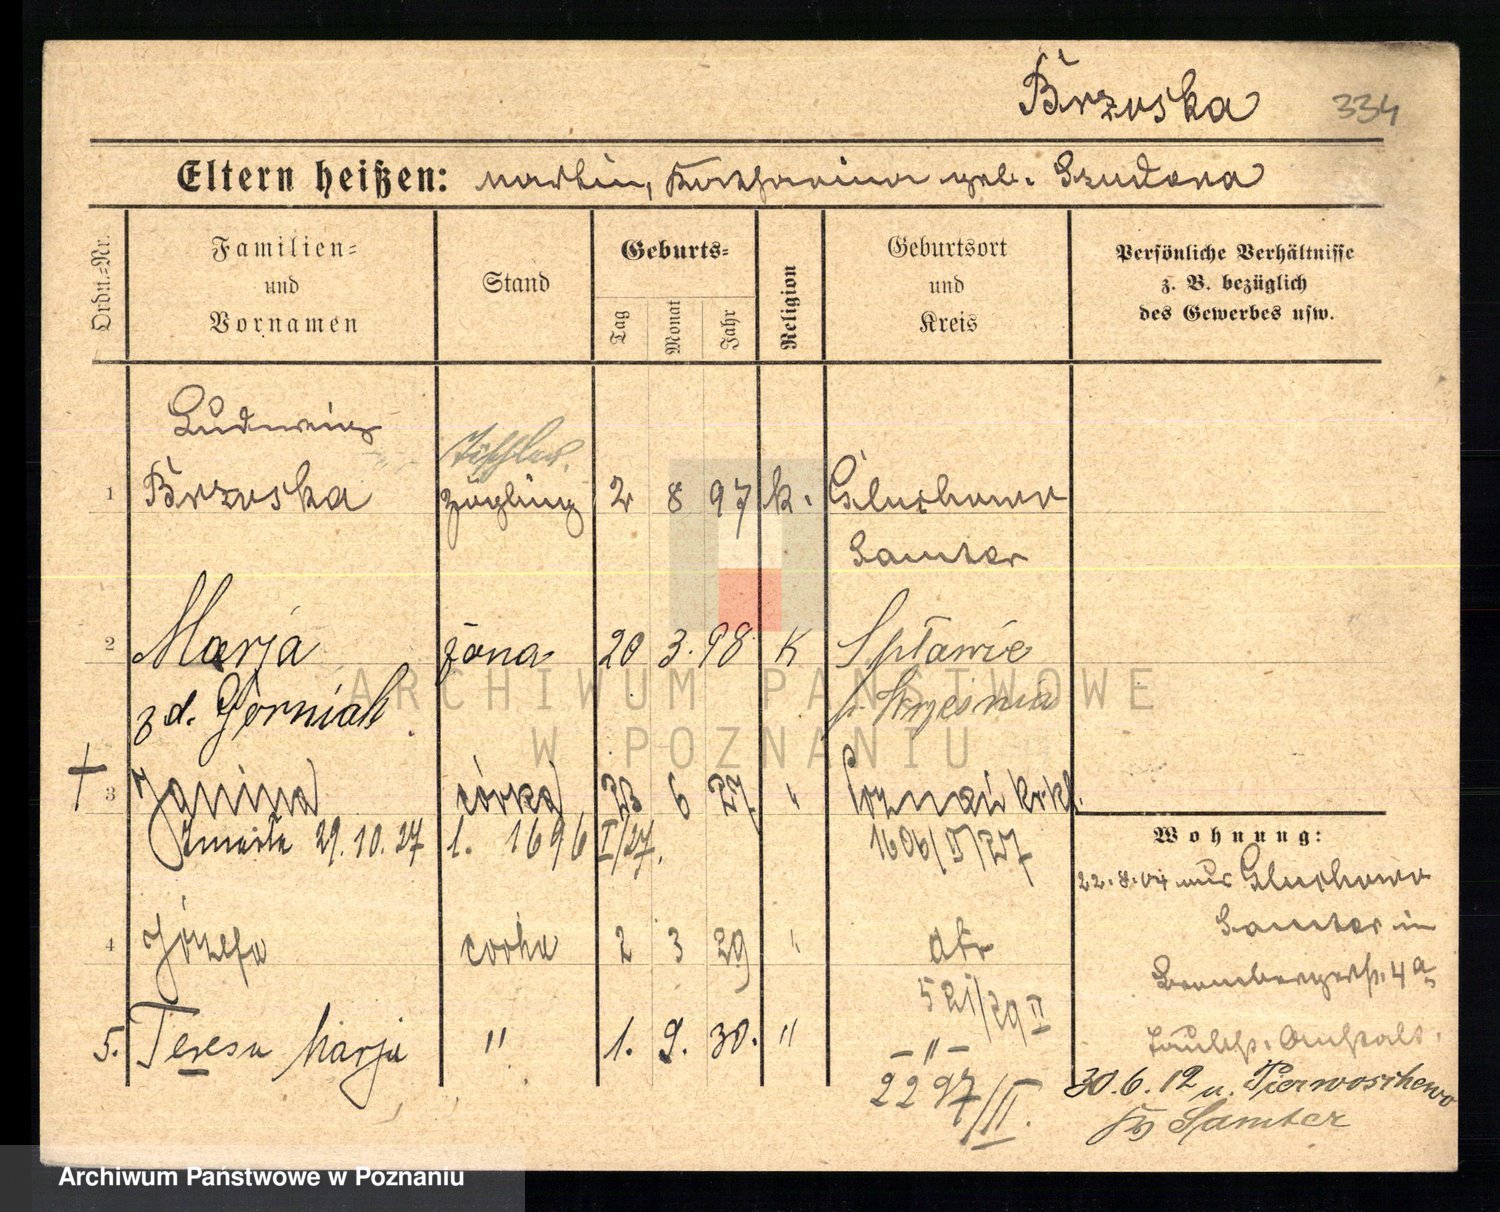 Brzoska 334
Eltern heißen: Martin, Katharina geb. Szudera
Ordn.-Nr.
Familien- und Vornamen
Stand
Geburts-
Tag
Monat
Jahr
Religion
Geburtsort und Kreis
Persönliche Verhältnisse
z. B. bezüglich
des Gewerbes usw.
Ludwig
Tischler.
1 Brzoska Zögling 2 8 97 k. Gluchowo
Samter
2 Marja żona 20 3. 98 K Spławie
z d. Górniak p. Krzesinia
† 3 Janina córka 23 6 27 "
zmarła 29.10.27 1. 1696 I/27.
1606/II/27
4 Józefa córka 2 3 29 "
521/29 II
5. Teresa Marja " 1. 9. 30. "
- " -
2297/II.
Wohnung:
22.8.04 aus Gluchowo
Samter in
Brombergerstr. 4a
Taubst. Anstalt.
30.6.12 n. Pierwoschewo
Kr Samter
ARCHIWUM PAŃSTWOWE
W POZNANIU
Archiwum Państwowe w Poznaniu